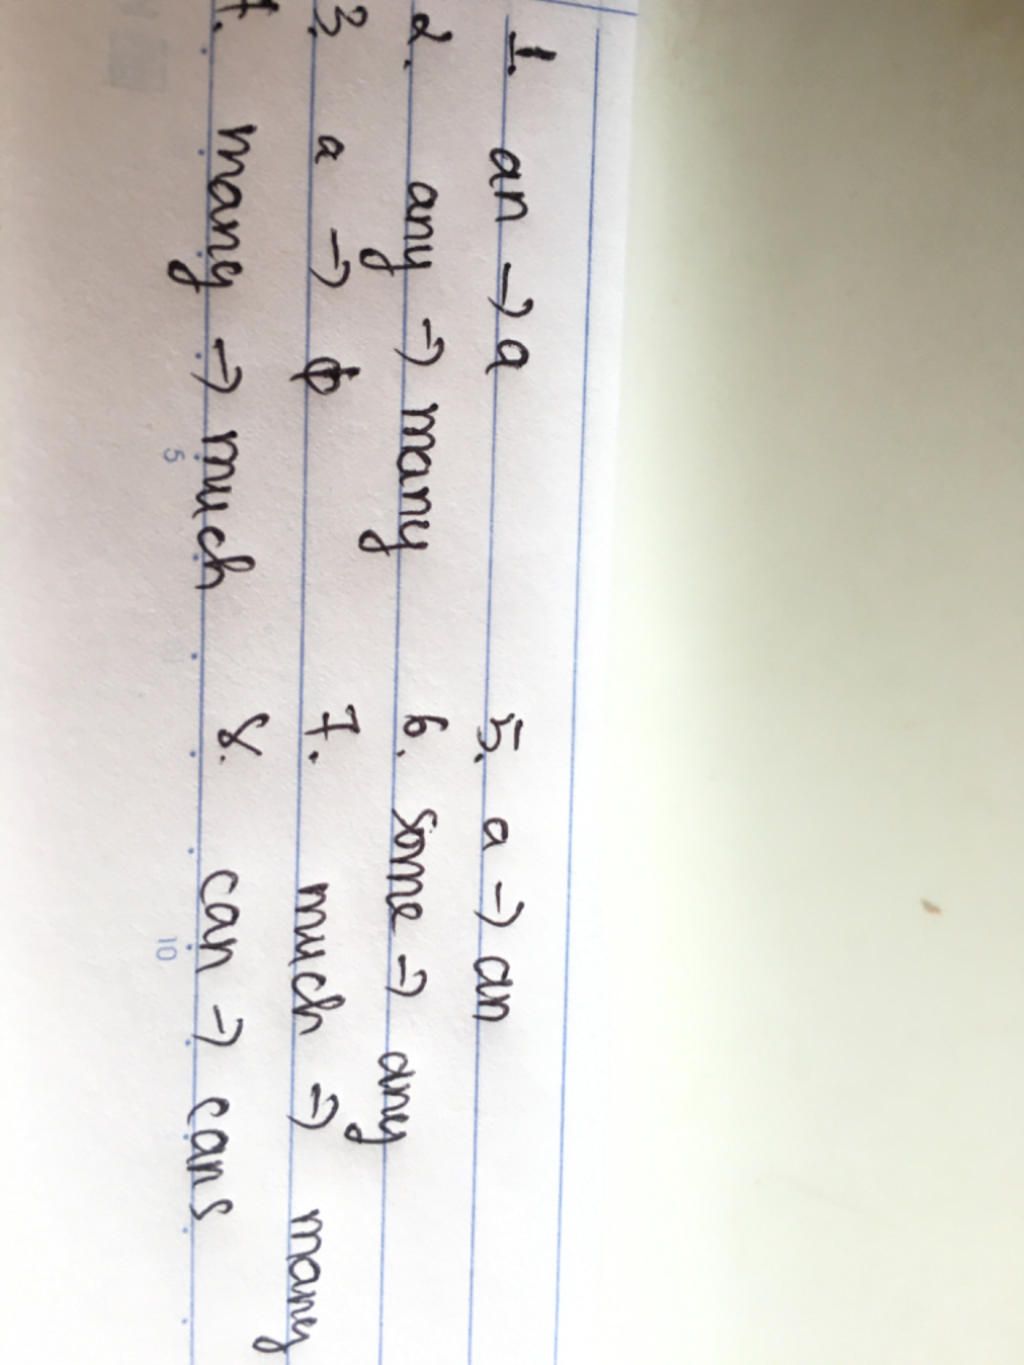 1. an → a 5. a → an
2. any → many 6. some → any
3. a → ϕ 7. much → many
4. many → much 8. can → cans
5 10